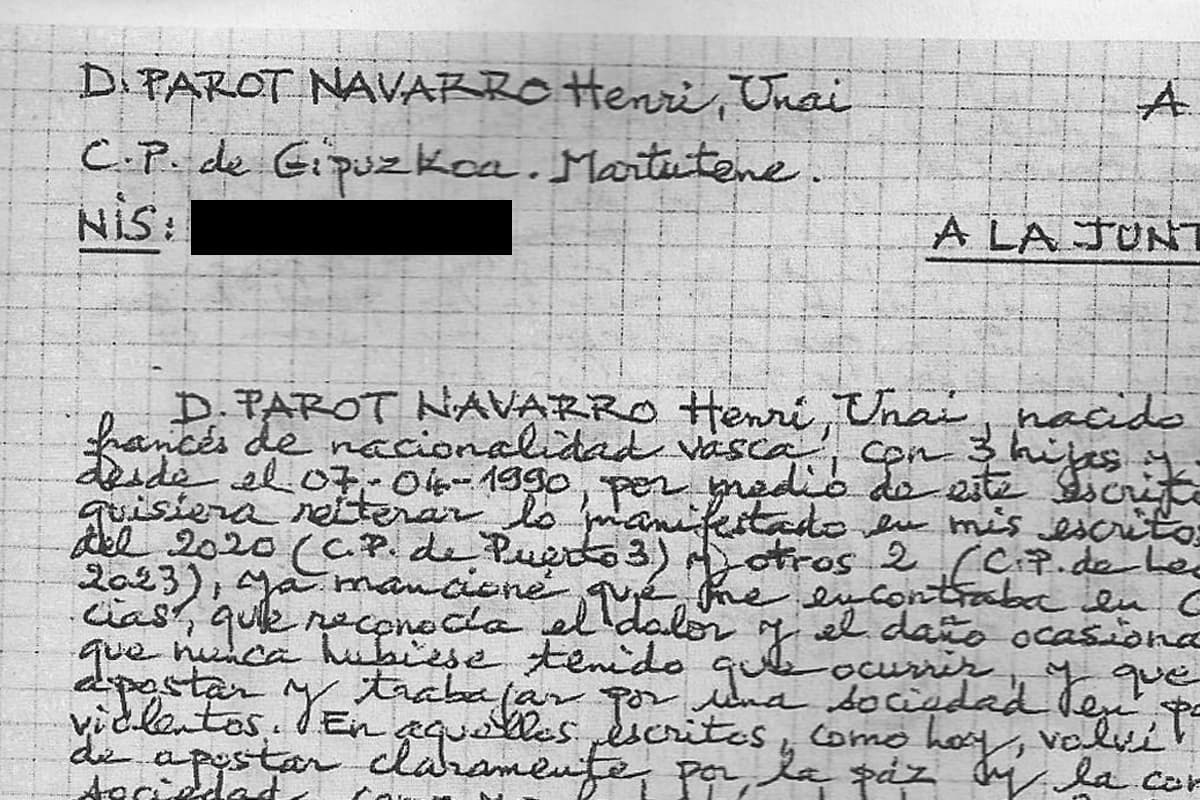 D. PAROT NAVARRO Henri, Unai A
C.P. de Gipuzkoa. Martutene.
NIS: A LA JUNT
D. PAROT NAVARRO Henri, Unai, nacido
francés de nacionalidad vasca, con 3 hijas y
desde el 07-04-1990, por medio de este escrit
quisiera reiterar lo manifestado en mis escritos
del 2020 (C.P. de Puerto 3) y otros 2 (C.P. de Le
2023), ya mancioné que me encontraba en
cias, que reconocía el dolor y el daño ocasiona
que nunca hubiese tenido que ocurrir, y que
apostar y trabajar por una sociedad en pa
violentos. En aquellos escritos, como hoy, volví
de apostar claramente por la paz y la con
sociedad